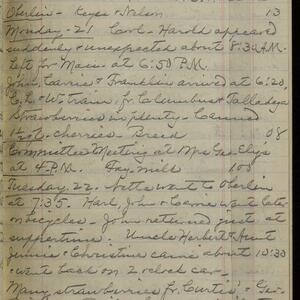 Oberlin - Keyes + Nelson 13
Monday - 21 Carl - Harold appeared
suddenly + unexpected about 8:30 A.M.
Left for Main at 6:50 P.M.
John, Carrie + Franklin arrived at 6:20,
W. train fr. Columbus + Talladega
Strawberries in plenty - Canned
Hot - cherries - Bread 08
Committee Meeting at Mrs Geo Ely's
at 4 P.M. Fay. milk 100
Tuesday, 22 - went to Oberlin
at 7:35. Karl, John + Carrie went later
on bicycles - John returned just at
suppertime. Uncle Herbert + Aunt
Jennie + Christine came about 10:30
+ went back on 2 o'clock car -
Many strawberries fr. Curtis' + Geo-